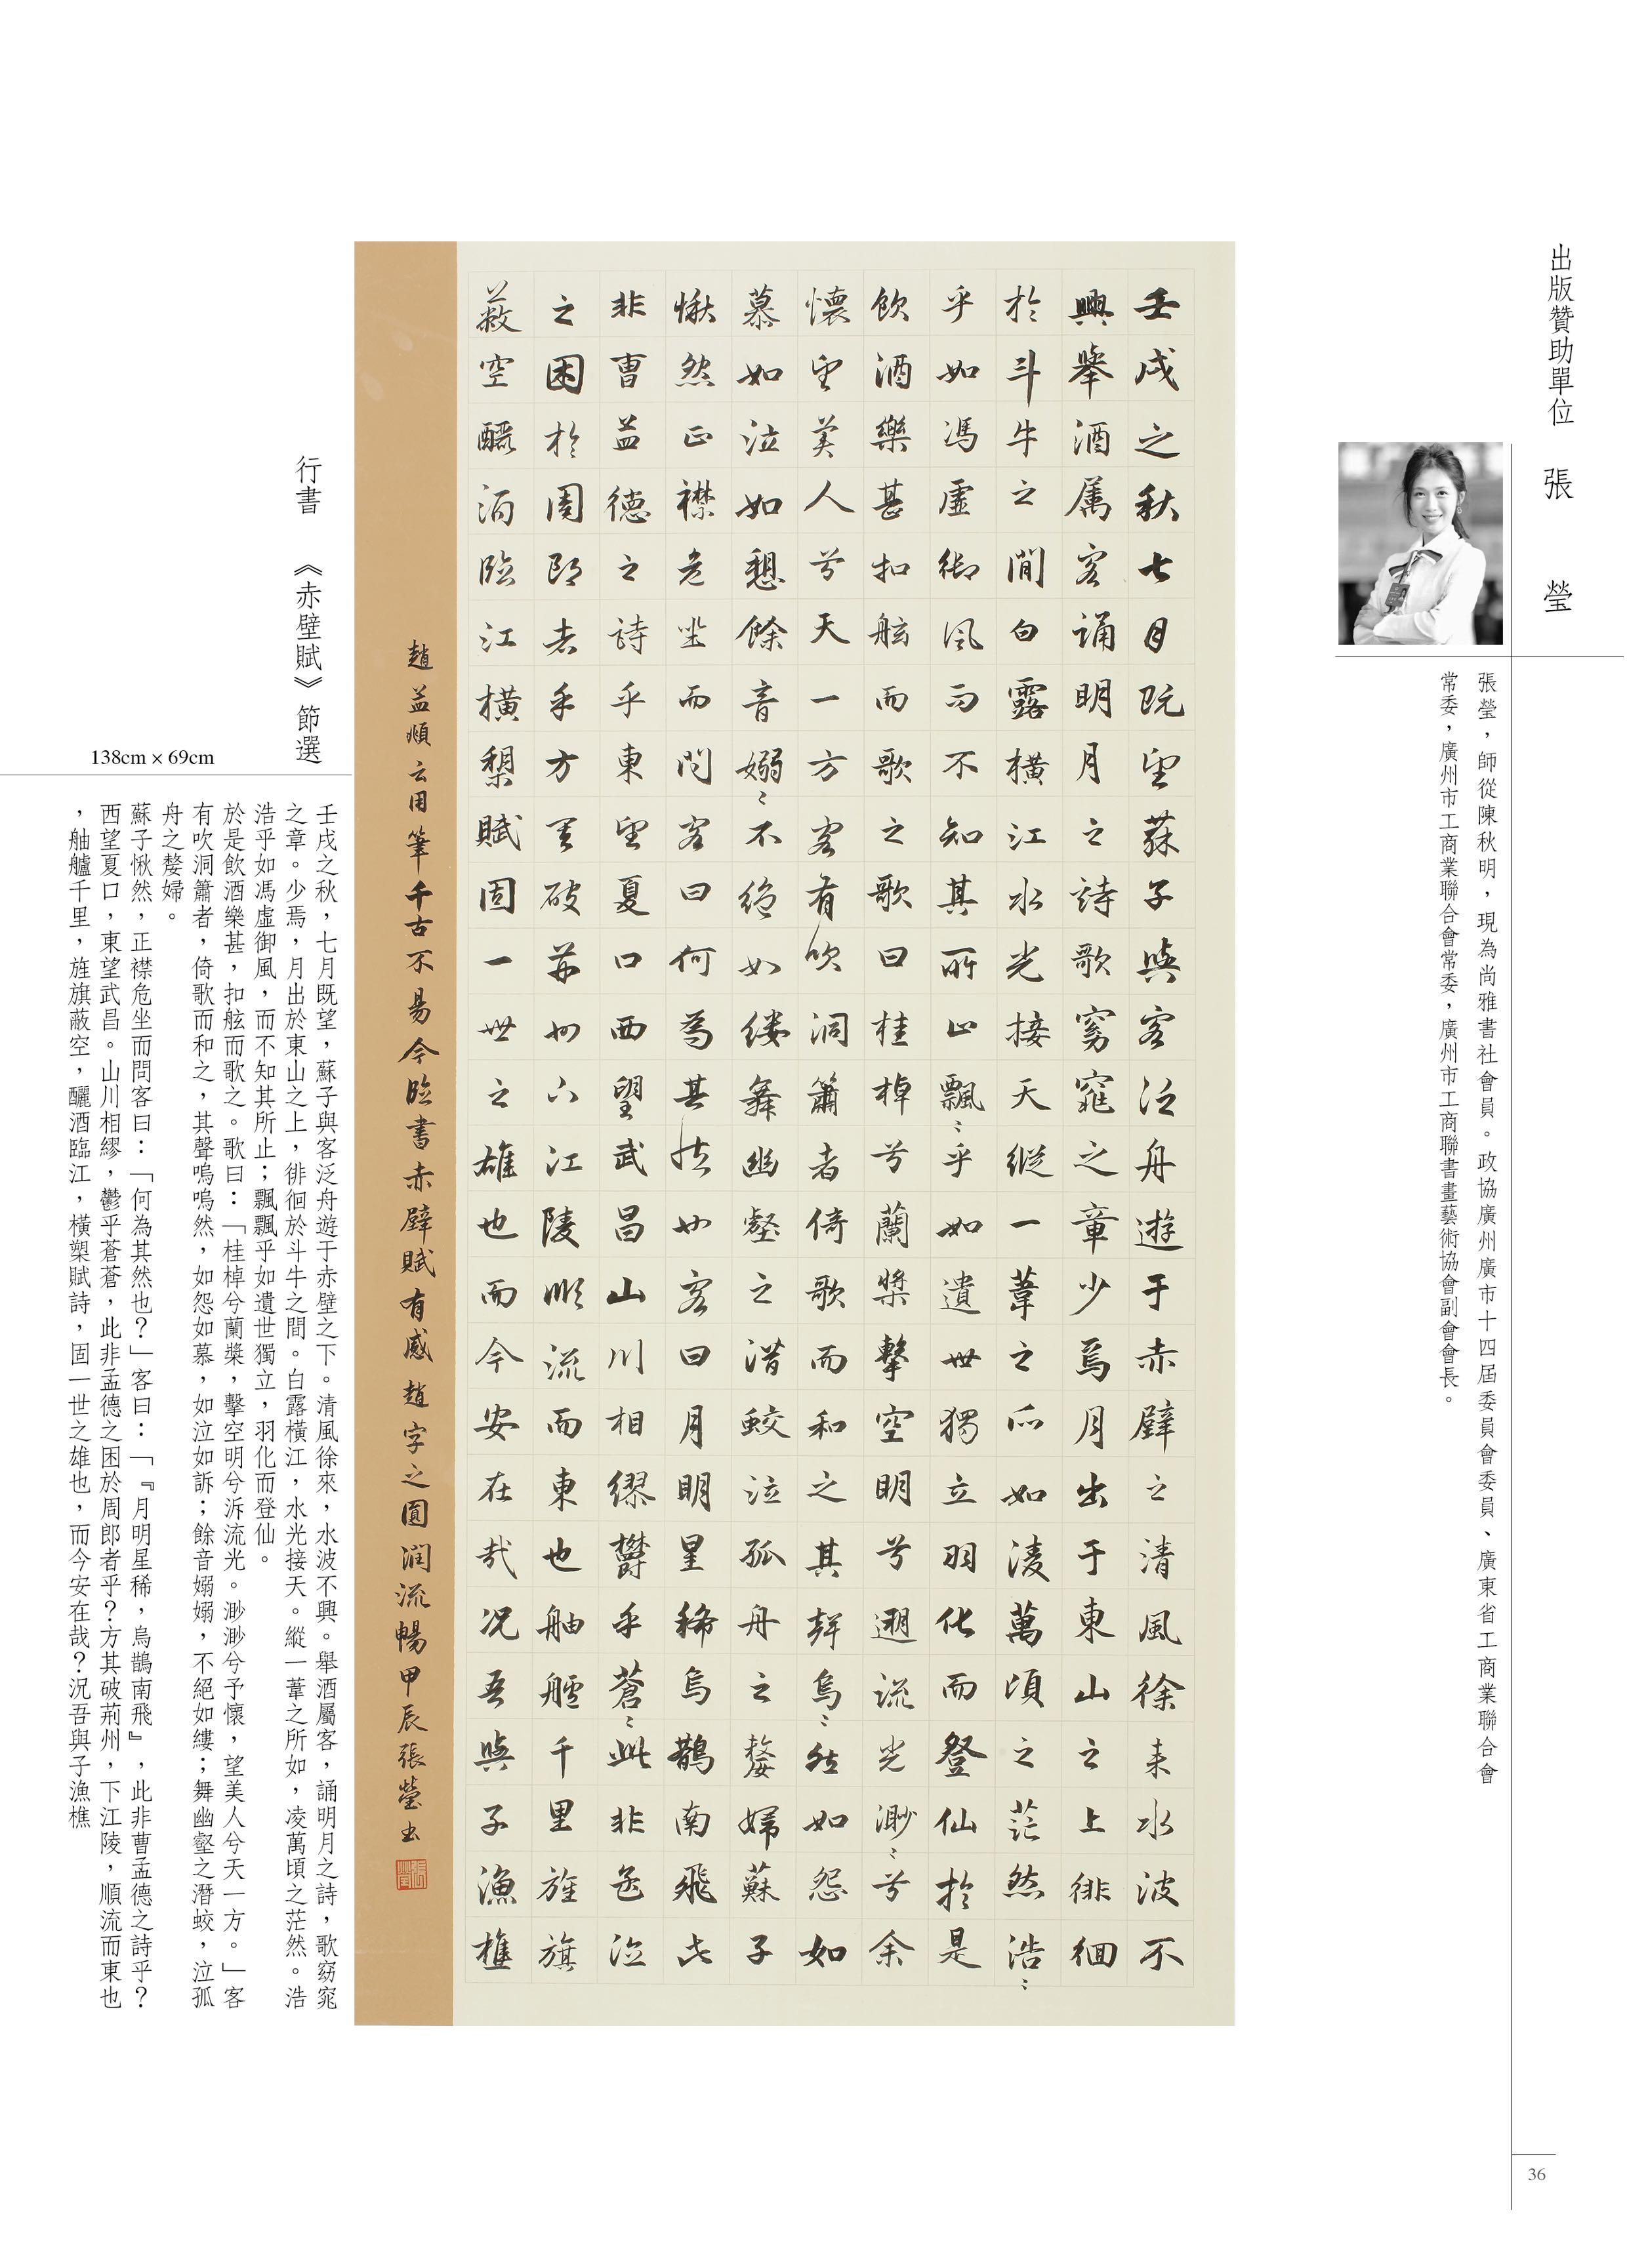 出版贊助單位　張　瑩
張瑩，師從陳秋明，現為尚雅書社會員。政協廣州廣市十四屆委員會委員、廣東省工商業聯合會
常委，廣州市工商業聯合會常委，廣州市工商聯書畫藝術協會副會會長。
壬戌之秋七月既望蘇子與客泛舟遊于赤壁之清風徐来水波不
興舉酒屬客誦明月之詩歌窈窕之章少焉月出于東山之上徘徊
於斗牛之間白露橫江水光接天縱一葦之所如凌萬頃之茫然浩〻
乎如馮虛御風而不知其所止飄〻乎如遺世獨立羽化而登仙於是
飲酒樂甚扣舷而歌之歌曰桂棹兮蘭槳擊空明兮遡流光渺〻兮余
懷望美人兮天一方客有吹洞簫者倚歌而和之其聲烏〻然如怨如
慕如泣如愬餘音嫋〻不絕如縷舞幽壑之潛蛟泣孤舟之嫠婦蘇子
愀然正襟危坐而問客曰何為其然也客曰月明星稀烏鵲南飛此
非曹孟德之詩乎東望夏口西望武昌山川相繆鬱乎蒼〻此非孟德
之困於周郎者乎方其破荊州下江陵順流而東也舳艫千里旌旗
蔽空釃酒臨江橫槊賦詩固一世之雄也而今安在哉況吾與子漁樵
趙孟頫云用筆千古不易今臨書赤壁賦有感趙字之圓潤流暢甲辰張瑩書
張瑩
行書　《赤壁賦》節選
138cm × 69cm
壬戌之秋，七月既望，蘇子與客泛舟遊于赤壁之下。清風徐來，水波不興。舉酒屬客，誦明月之詩，歌窈窕
之章。少焉，月出於東山之上，徘徊於斗牛之間。白露橫江，水光接天。縱一葦之所如，凌萬頃之茫然。浩
浩乎如馮虛御風，而不知其所止；飄飄乎如遺世獨立，羽化而登仙。
於是飲酒樂甚，扣舷而歌之。歌曰：「桂棹兮蘭槳，擊空明兮泝流光。渺渺兮予懷，望美人兮天一方。」客
有吹洞簫者，倚歌而和之，其聲嗚嗚然，如怨如慕，如泣如訴；餘音嫋嫋，不絕如縷；舞幽壑之潛蛟，泣孤
舟之嫠婦。
蘇子愀然，正襟危坐而問客曰：「何為其然也？」客曰：「『月明星稀，烏鵲南飛』，此非曹孟德之詩乎？
西望夏口，東望武昌。山川相繆，鬱乎蒼蒼，此非孟德之困於周郎者乎？方其破荊州，下江陵，順流而東也
，舳艫千里，旌旗蔽空，釃酒臨江，橫槊賦詩，固一世之雄也，而今安在哉？況吾與子漁樵
36